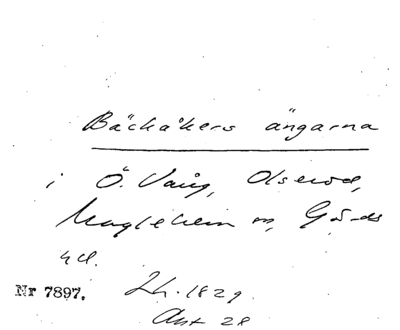 Bäckåkers ängarna
i Ö. Vång, Olseröd,
Maglehem m, Gärds
hd.
Nr 7897. Lh. 1829.
Akt 28